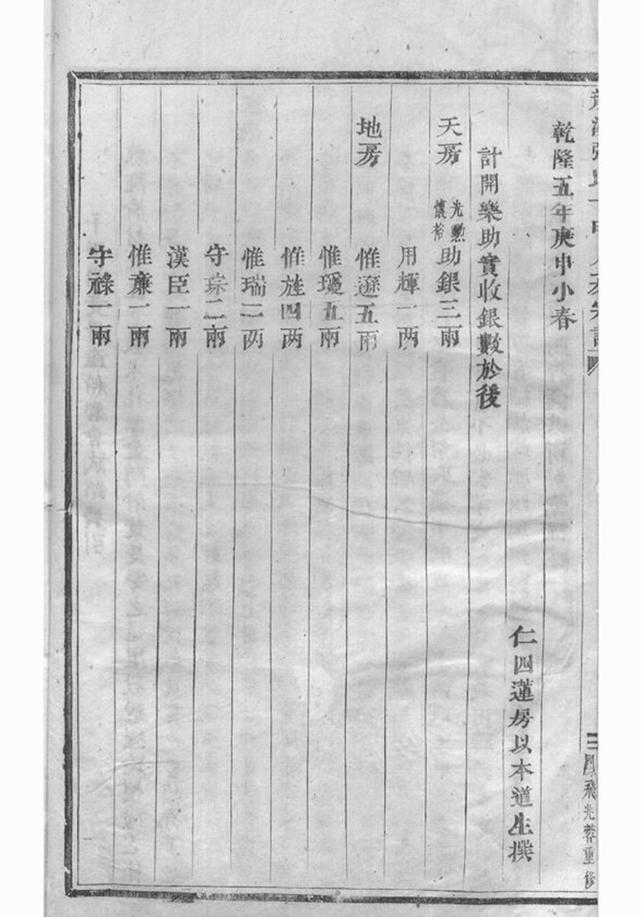 乾隆五年庚申小春
仁四蓮房以本道生撰
計開樂助實收銀數於後
天房 光勲 懷裕 助銀三兩
用輝一两
地房 惟遜五兩
惟瑗五兩
惟旌四两
惟瑞二两
守琮二兩
漢臣一兩
惟廉一兩
守祿一兩
飛光蓉重修